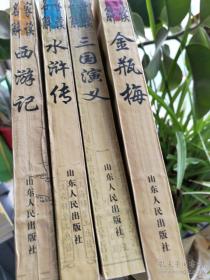 西游记
山东人民出版社
水浒传
山东人民出版社
三国演义
山东人民出版社
金瓶梅
山东人民出版社